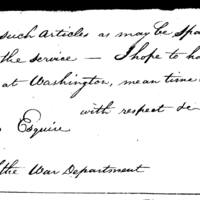 such articles as may be spa
the service — I hope to ha
at Washington, mean time
with respect &c
Esquire
the War Department